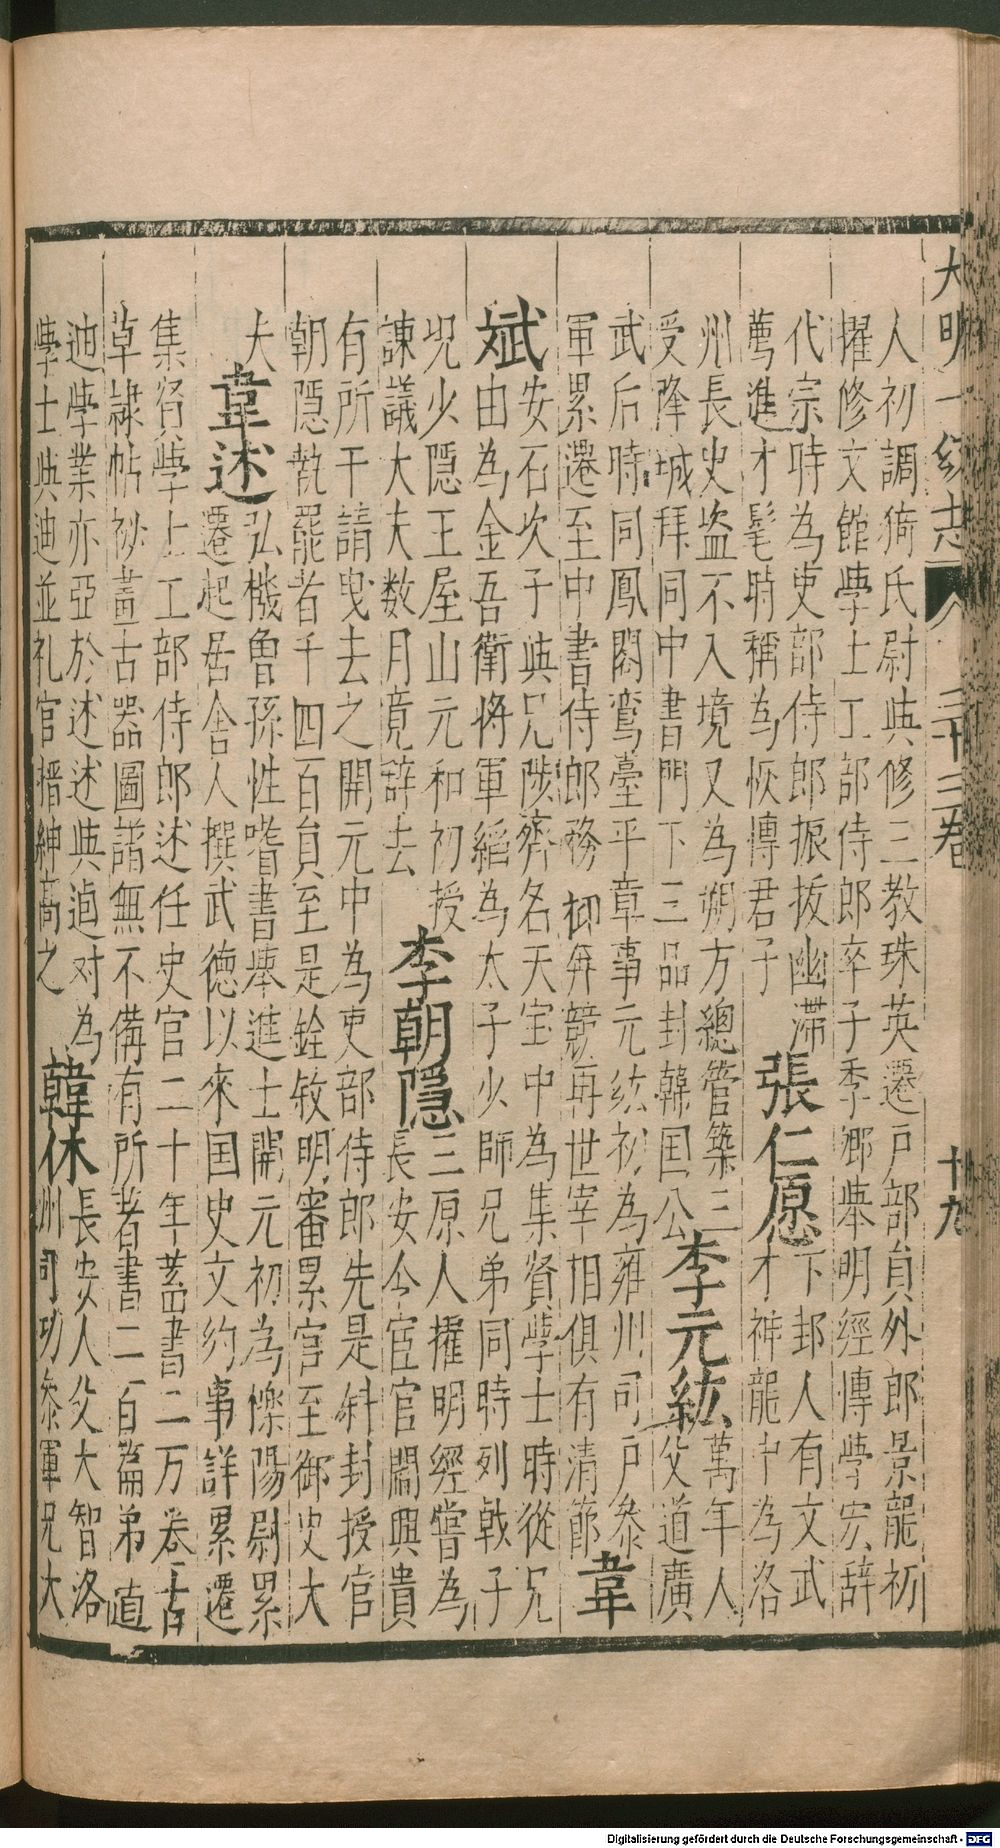 大明一統志 三十二卷 十九
人初調猗氏尉與修三教珠英遷户部員外郎景龍初
擢修文館學士工部侍郎卒子季卿舉明經博學宏辞
代宗時為吏部侍郎振拔幽滯
薦進才髦時稱為恢博君子
張仁愿
下邽人有文武
才神龍中為洛
州長史盗不入境又為朔方總管築三
受降城拜同中書門下三品封韓国公
李元紘
萬年人
父道廣
武后時同鳳閣鸞臺平章事元紘初為雍州司户參
軍累遷至中書侍郎務抑奔競再世宰相俱有清節
韋
斌
安石次子與兄陟齊名天宝中為集賢學士時從兄
由為金吾衛将軍縚為太子少師兄弟同時列戟子
况少隱王屋山元和初授
諫議大夫数月竟辞去
李朝隱
三原人擢明經嘗為
長安令宦官閻興貴
有所干請曳去之開元中為吏部侍郎先是斜封授官
朝隱執罷者千四百員至是銓敘明審累官至御史大
夫
韋述
弘機曾孫性嗜書舉進士開元初為櫟陽尉累
遷起居舍人撰武德以來国史文約事詳累遷
集賢學士工部侍郎述任史官二十年蓄書二万卷古
草隷帖祕畫古器圖譜無不備有所著書二百篇弟逌
迪學業亦亞於述述與逌对為
學士與迪並礼官搢紳高之
韓休
長安人父大智洛
州司功參軍兄大
Digitalisierung gefördert durch die Deutsche Forschungsgemeinschaft - DFG